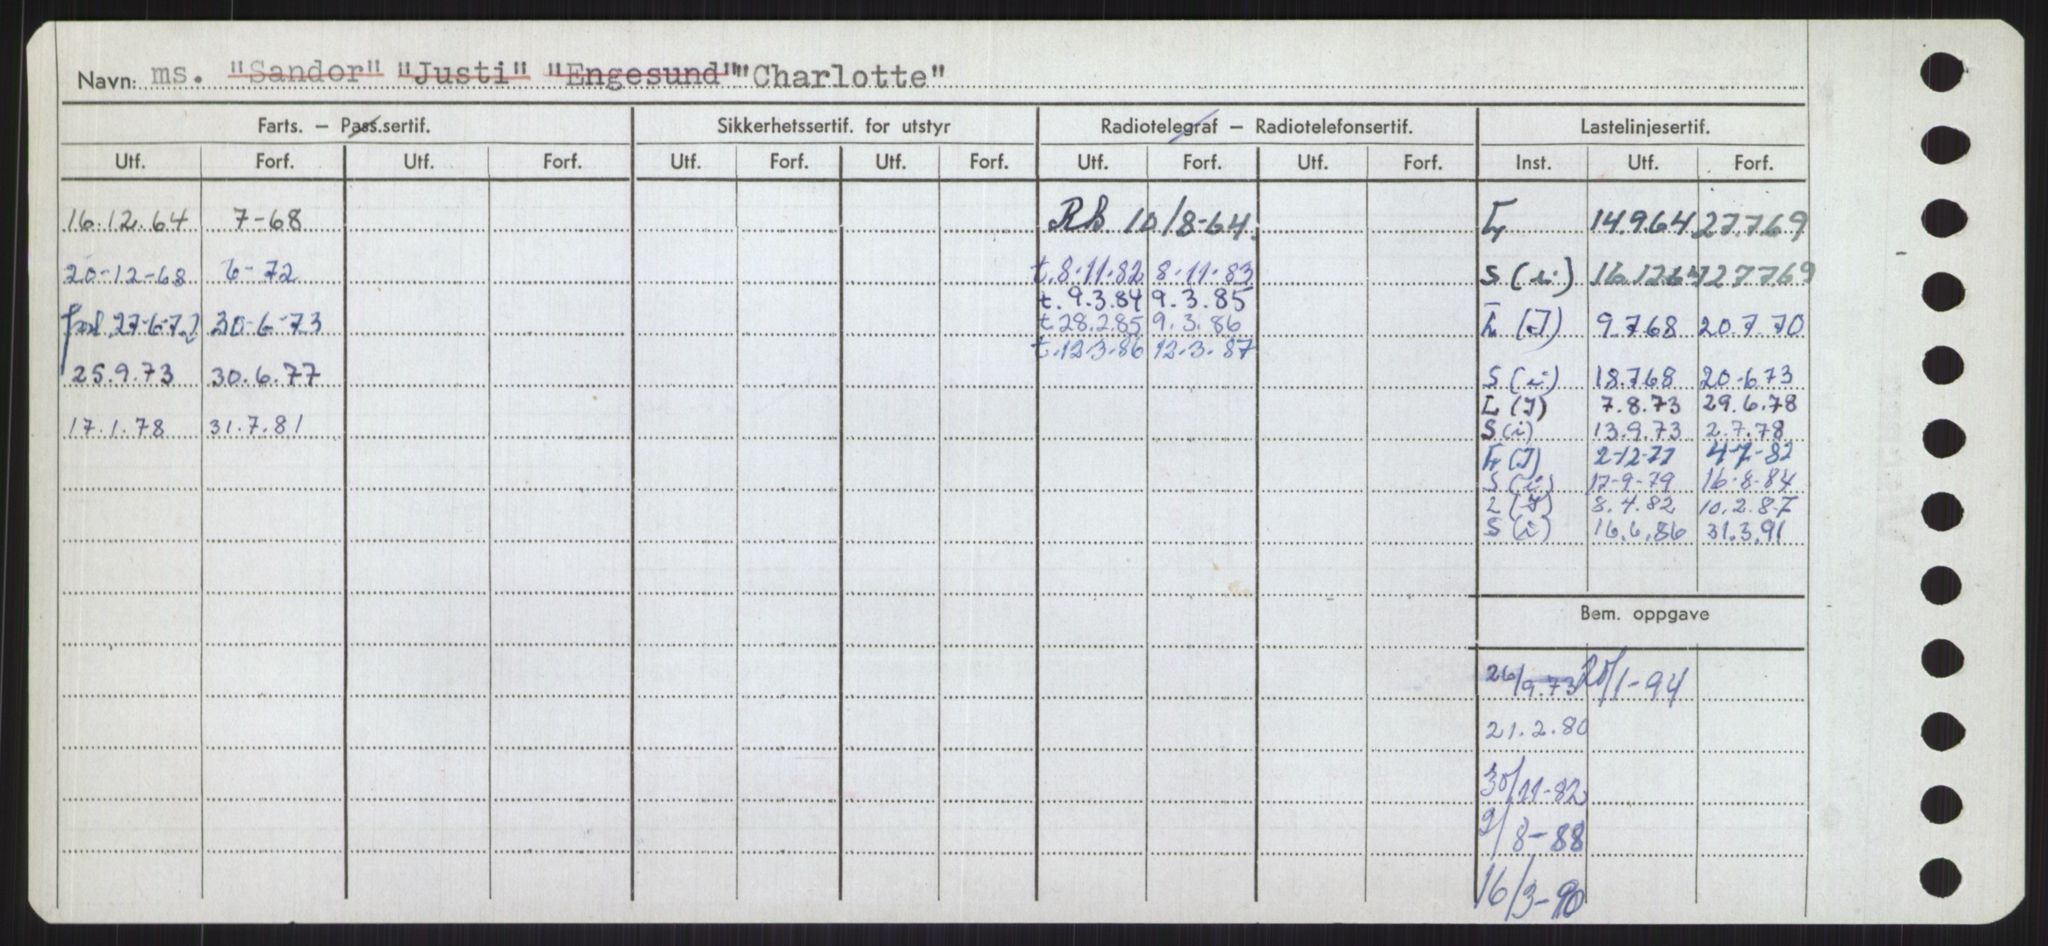 Navn: ms. "Sandor" "Justi" "Engesund" "Charlotte"
Farts. — Pass.sertif. Sikkerhetssertif. for utstyr Radiotelegraf — Radiotelefonsertif. Lastelinjesertif.
Utf. Forf. Utf. Forf. Utf. Forf. Utf. Forf. Utf. Forf. Utf. Forf. Inst. Utf. Forf.
16.12.64 7-68 10/8-64. 14.9.64 27.7.69
20-12-68 6-72 t. 8.11.82 8-11-83 S (i) 27769
t. 9.3.84 9.3.85
27-6-72 30-6-73 t. 28.2.85 9.3.86 L (I) 9.7.68 20.7.70
t. 12.3.86 12.3.87
25.9.73 30.6.77 S (i) 18.7.68 20.6.73
L (I) 7.8.73 29.6.78
17.1.78 31.7.81 S (i) 13.9.73 2.7.78
L (I) 2-12-77 4-7-82
S (i) 17-9-79 16-8-84
L (I) 8.4.82 10.2.87
S (i) 16.6.86 31.3.91
Bem. oppgave
26/9.73 /1-94
21.2.80
30/11-82
9/8-88
16/3-90